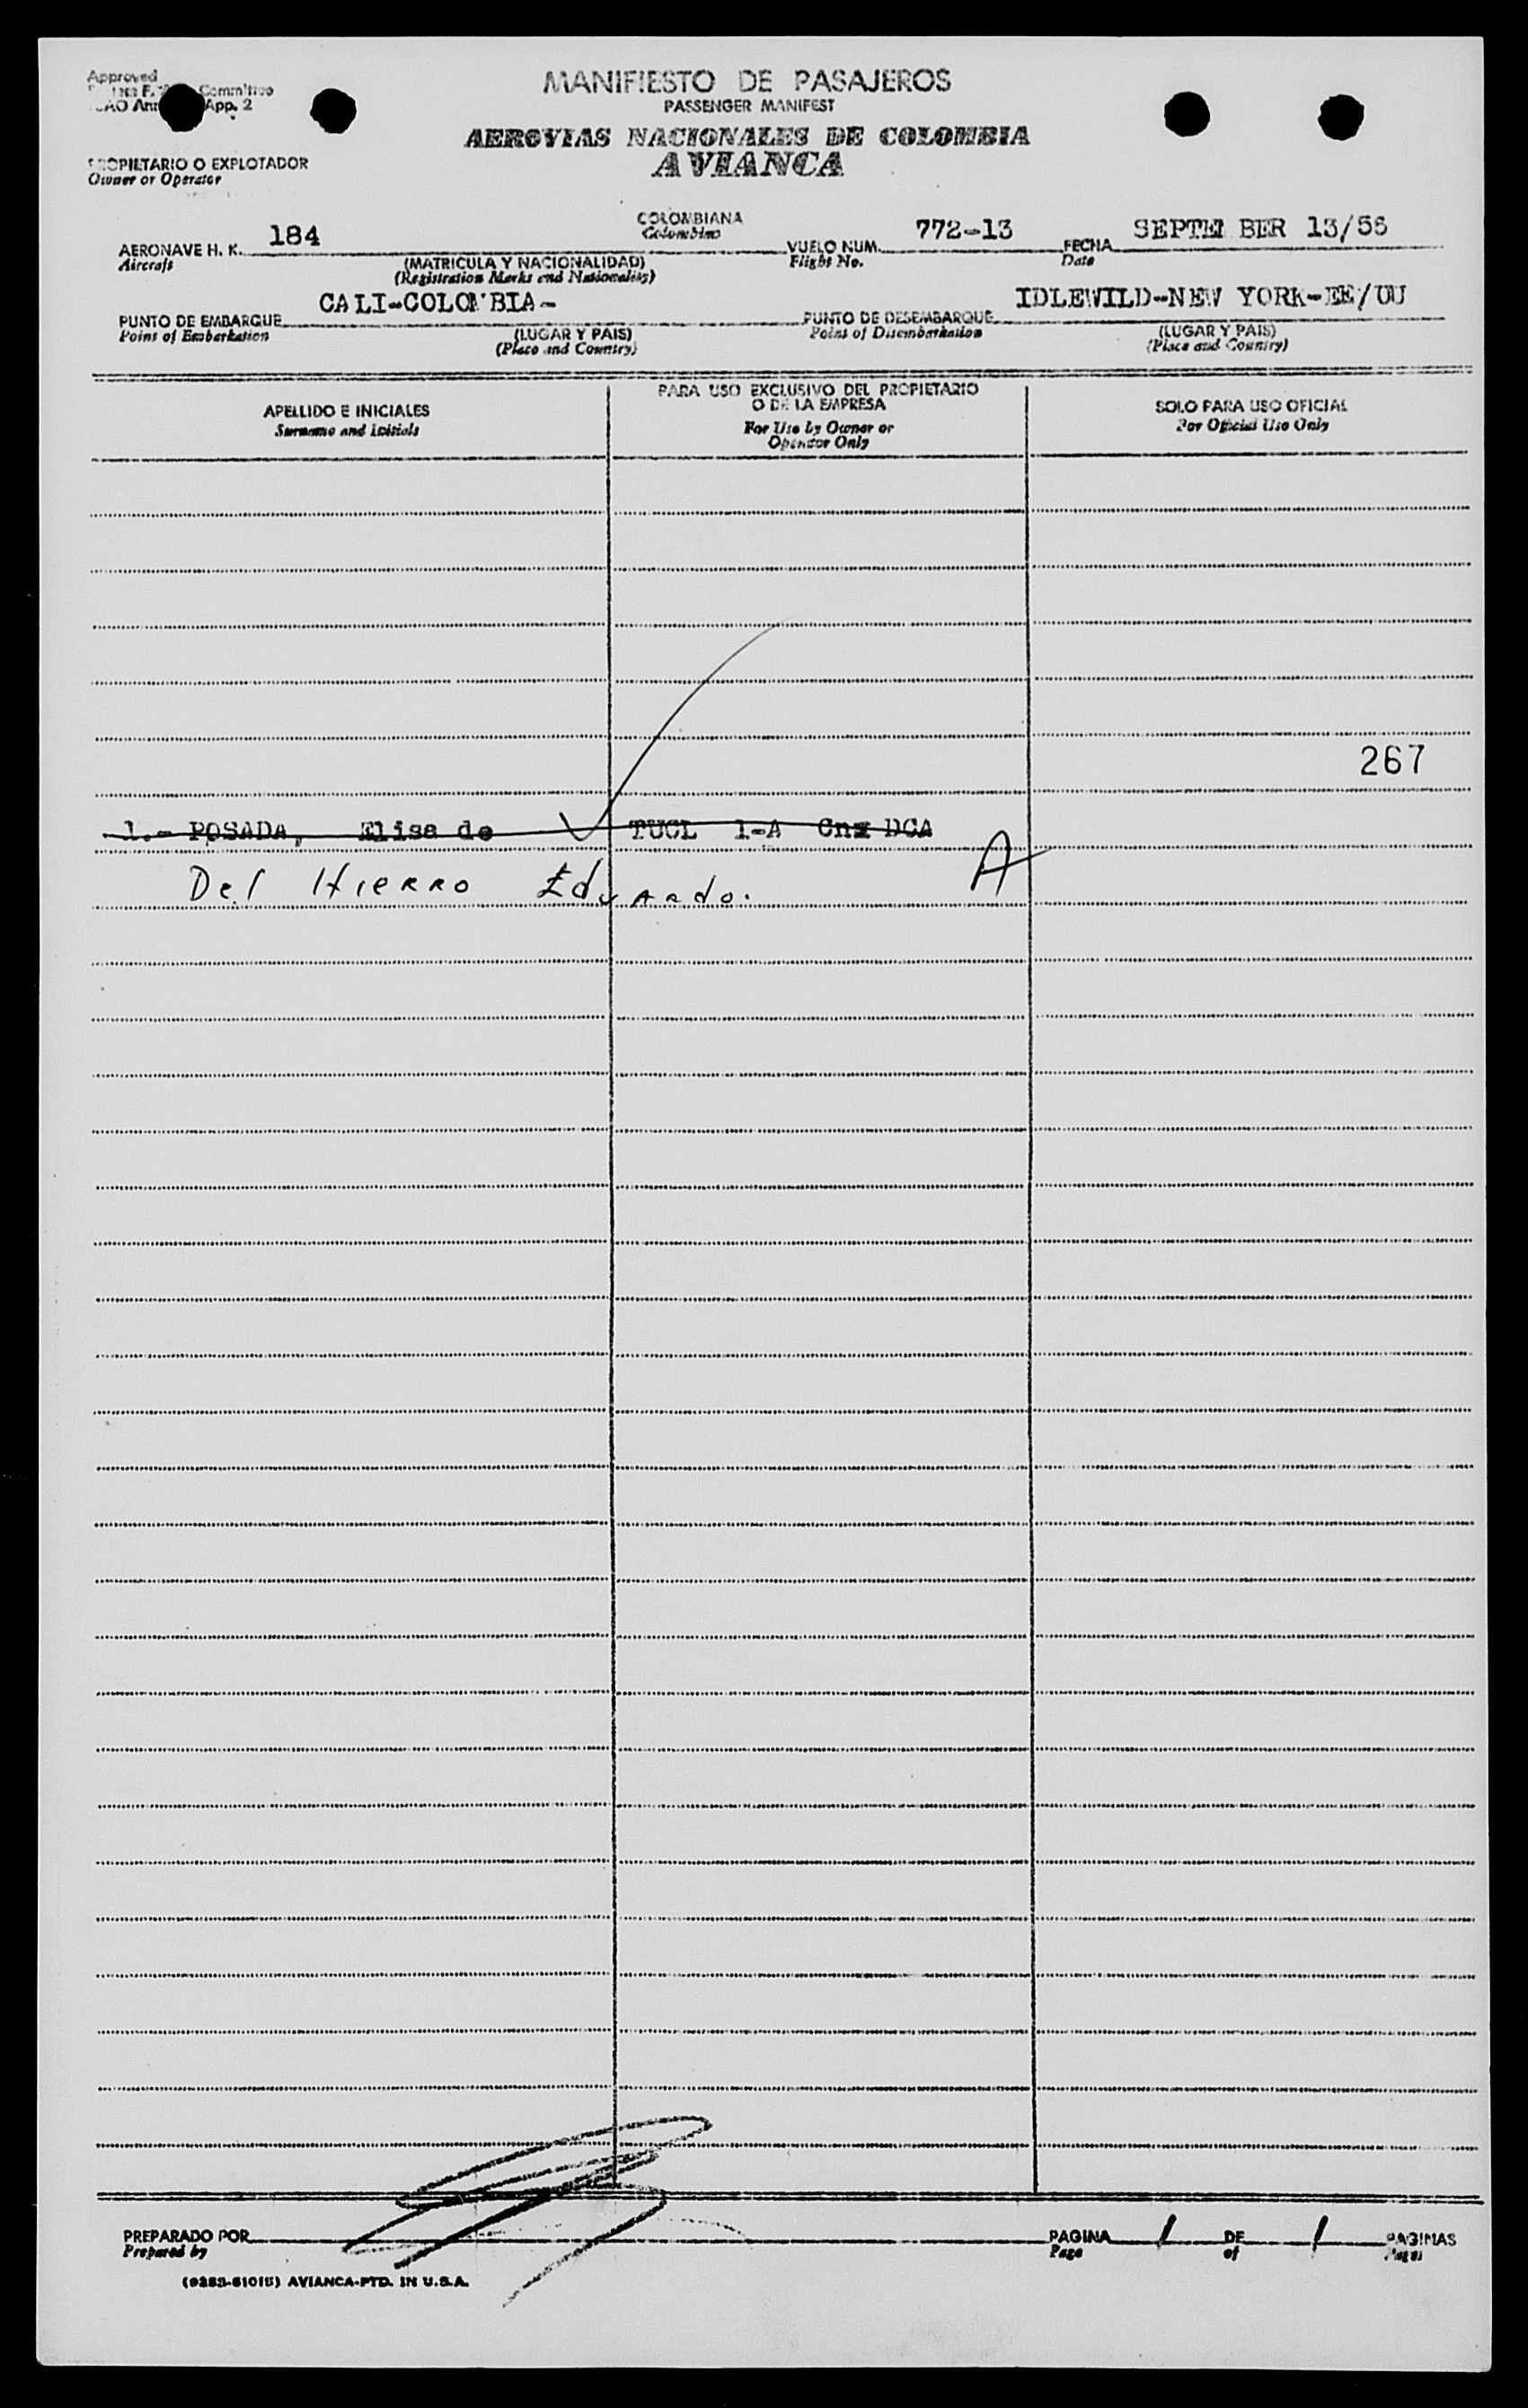 Approved
Committee
App. 2
MANIFIESTO DE PASAJEROS
PASSENGER MANIFEST
AEROVIAS NACIONALES DE COLOMBIA
AVIANCA
PROPIETARIO O EXPLOTADOR
Owner or Operator
AERONAVE H. K. 184 COLOMBIANA VUELO NUM. 772-13 FECHA SEPTEMBER 13/56
Aircraft Colombian Flight No. Date
(MATRICULA Y NACIONALIDAD)
(Registration Marks and Nationality)
PUNTO DE EMBARQUE CALI-COLOMBIA- PUNTO DE DESEMBARQUE IDLEWILD-NEW YORK-EE/UU
Point of Embarkation (LUGAR Y PAIS) Point of Disembarkation (LUGAR Y PAIS)
(Place and Country) (Place and Country)
APELLIDO E INICIALES PARA USO EXCLUSIVO DEL PROPIETARIO O DE LA EMPRESA SOLO PARA USO OFICIAL
Surname and Initials For Use by Owner or Operator Only For Official Use Only
267
1.- POSADA, Elisa de TUCL 1-A Cnx DCA
Del Hierro Eduardo. A
PREPARADO POR PAGINA 1 DE 1 PAGINAS
Prepared by Page of Pages
(0253-61015) AVIANCA-PTD. IN U.S.A.